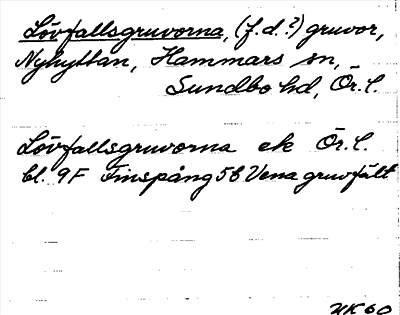 Lövfallsgruvorna, (f.d.?) gruvor,
Nyhyttan, Hammars sn,
Sundbo hd, Ör. l.
Lövfallsgruvorna ek Ör. l.
bl. 9F Finspång 5b Vena gruvfält
HK 60